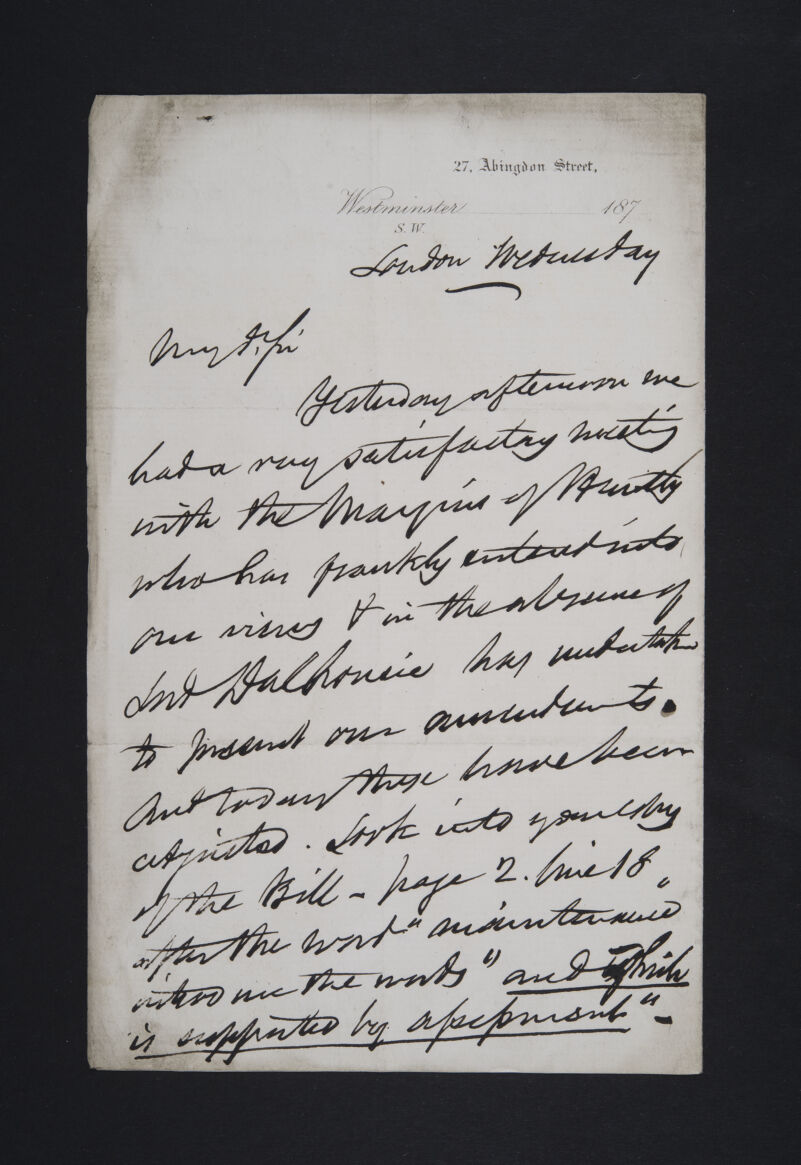 27, Abingdon Street,
Westminster 187
S.W.
London Wednesday
My dr. Sir
Yesterday afternoon we
had a very satisfactory meeting
with the Marquis of Huntly
who has frankly entered into
our views & in the absence of
Lord Dalhousie has undertaken
to present our amendments.
And today these have been
adjusted. Look into your copy
of the Bill - page 2. line 18
after the word "maintenance"
introduce the words "and which
is supported by assessment"-